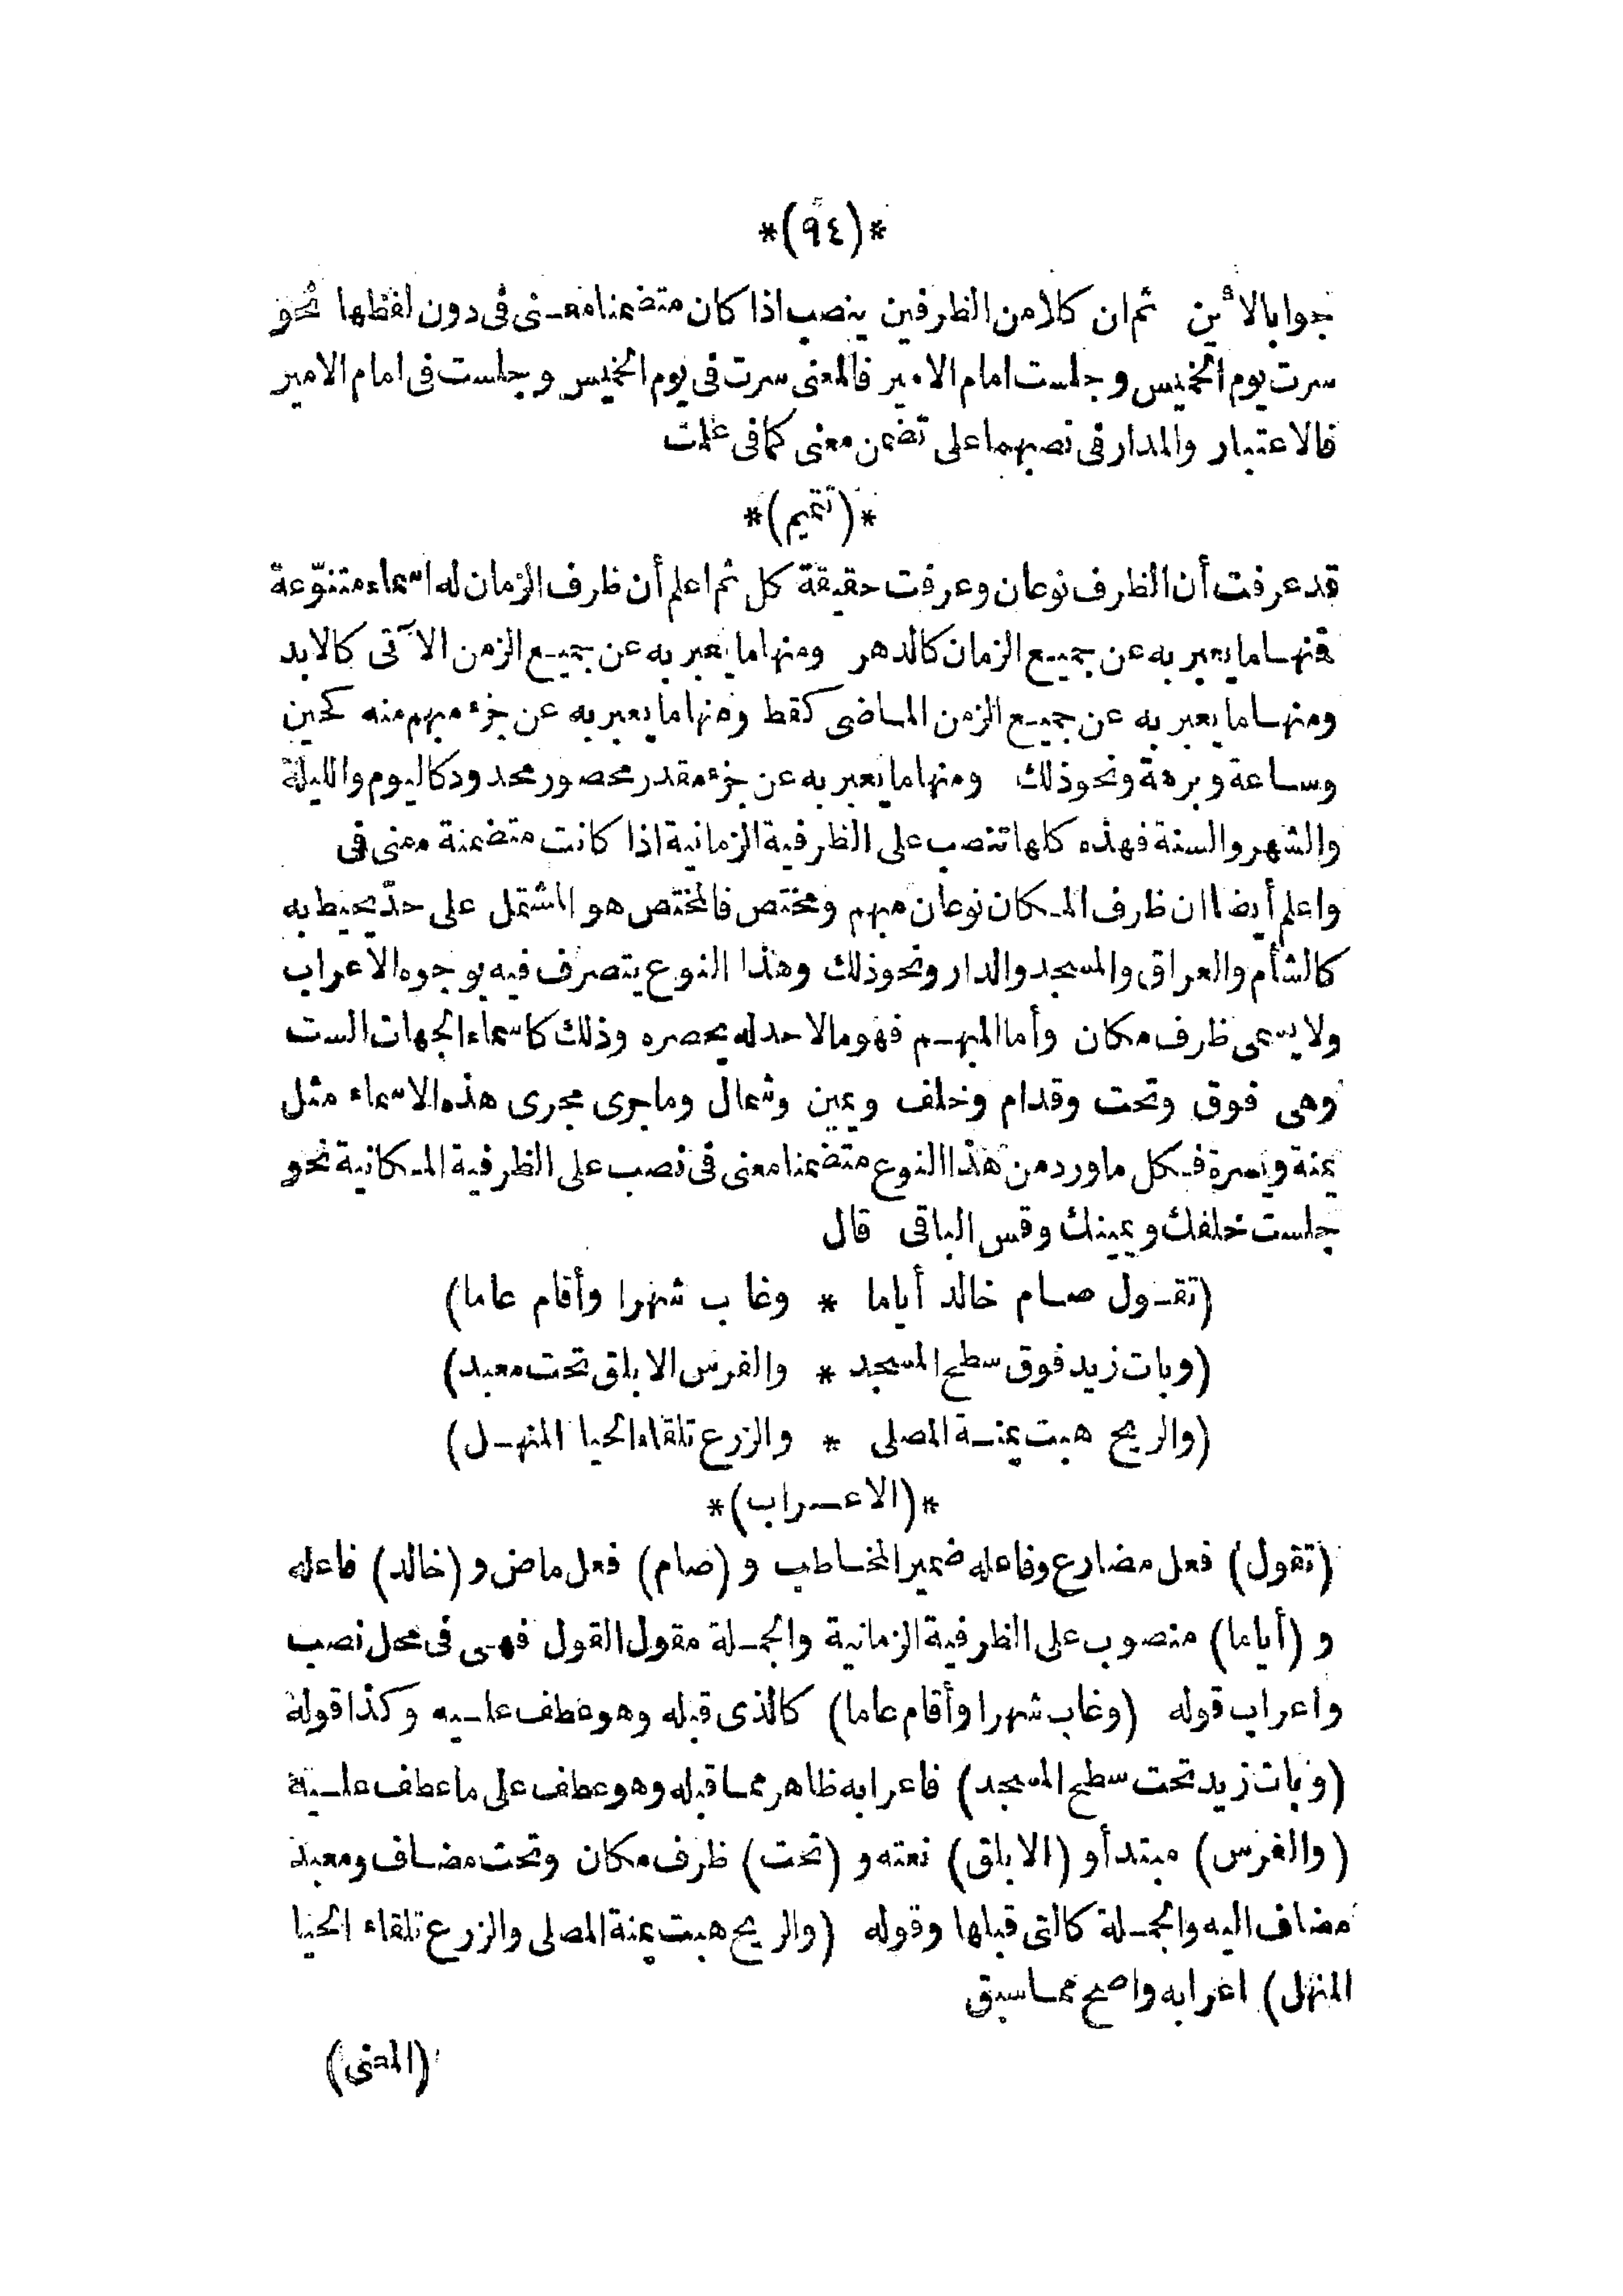 *(٩٤)*
جوابا لأين ثم ان كلا من الظرفين ينصب اذا كان متضمنا معنى فى دون لفظها نحو
سرت يوم الخميس وجلست امام الامير فالمعنى سرت فى يوم الخميس وجلست فى امام الامير
فالاعتبار والمدار فى نصبهما على تضمن معنى كما فى علمت
*(تتميم)*
قد عرفت أن الظرف نوعان وعرفت حقيقة كل ثم اعلم أن ظرف الزمان له اسماء متنوّعة
فمنها ما يعبر به عن جميع الزمان كالدهر ومنها ما يعبر به عن جميع الزمن الآتى كالابد
ومنها ما يعبر به عن جميع الزمن الماضى كقط ومنها ما يعبر به عن جزء مبهم منه كحين
وساعة وبرهة ونحو ذلك ومنها ما يعبر به عن جزء مقدر محصور محدود كاليوم والليلة
والشهر والسنة فهذه كلها تنصب على الظرفية الزمانية اذا كانت متضمنة معنى فى
واعلم أيضا ان ظرف المكان نوعان مبهم ومختص فالمختص هو المشتمل على حدّ يحيط به
كالشأم والعراق والمسجد والدار ونحو ذلك وهذا النوع يتصرف فيه بوجوه الاعراب
ولا يسمى ظرف مكان وأما المبهم فهو مالا حد له يحصره وذلك كاسماء الجهات الست
وهى فوق وتحت وقدام وخلف ويمين وشمال وما جرى مجرى هذه الاسماء مثل
يمنة ويسرة فكل ما ورد من هذا النوع متضمنا معنى فى نصب على الظرفية المكانية نحو
جلست خلفك ويمينك وقس الباقى قال
(تقول صام خالد أياما * وغاب شهرا وأقام عاما)
(وبات زيد فوق سطح المسجد * والفرس الابلق تحت معبد)
(والريح هبت يمنة المصلى * والزرع تلقاء الحيا المنهل)
*(الاعراب)*
(تقول) فعل مضارع وفاعله ضمير المخاطب و (صام) فعل ماض و (خالد) فاعله
و (أياما) منصوب على الظرفية الزمانية والجملة مقول القول فهى فى محل نصب
واعراب قوله (وغاب شهرا وأقام عاما) كالذى قبله وهو عطف عليه وكذا قوله
(وبات زيد تحت سطح المسجد) فاعرابه ظاهر مما قبله وهو عطف على ما عطف عليه
(والفرس) مبتدأ و (الابلق) نعته و (تحت) ظرف مكان وتحت مضاف ومعبد
مضاف اليه والجملة كالتى قبلها وقوله (والريح هبت يمنة المصلى والزرع تلقاء الحيا
المنهل) اعرابه واضح مما سبق
(المعنى)